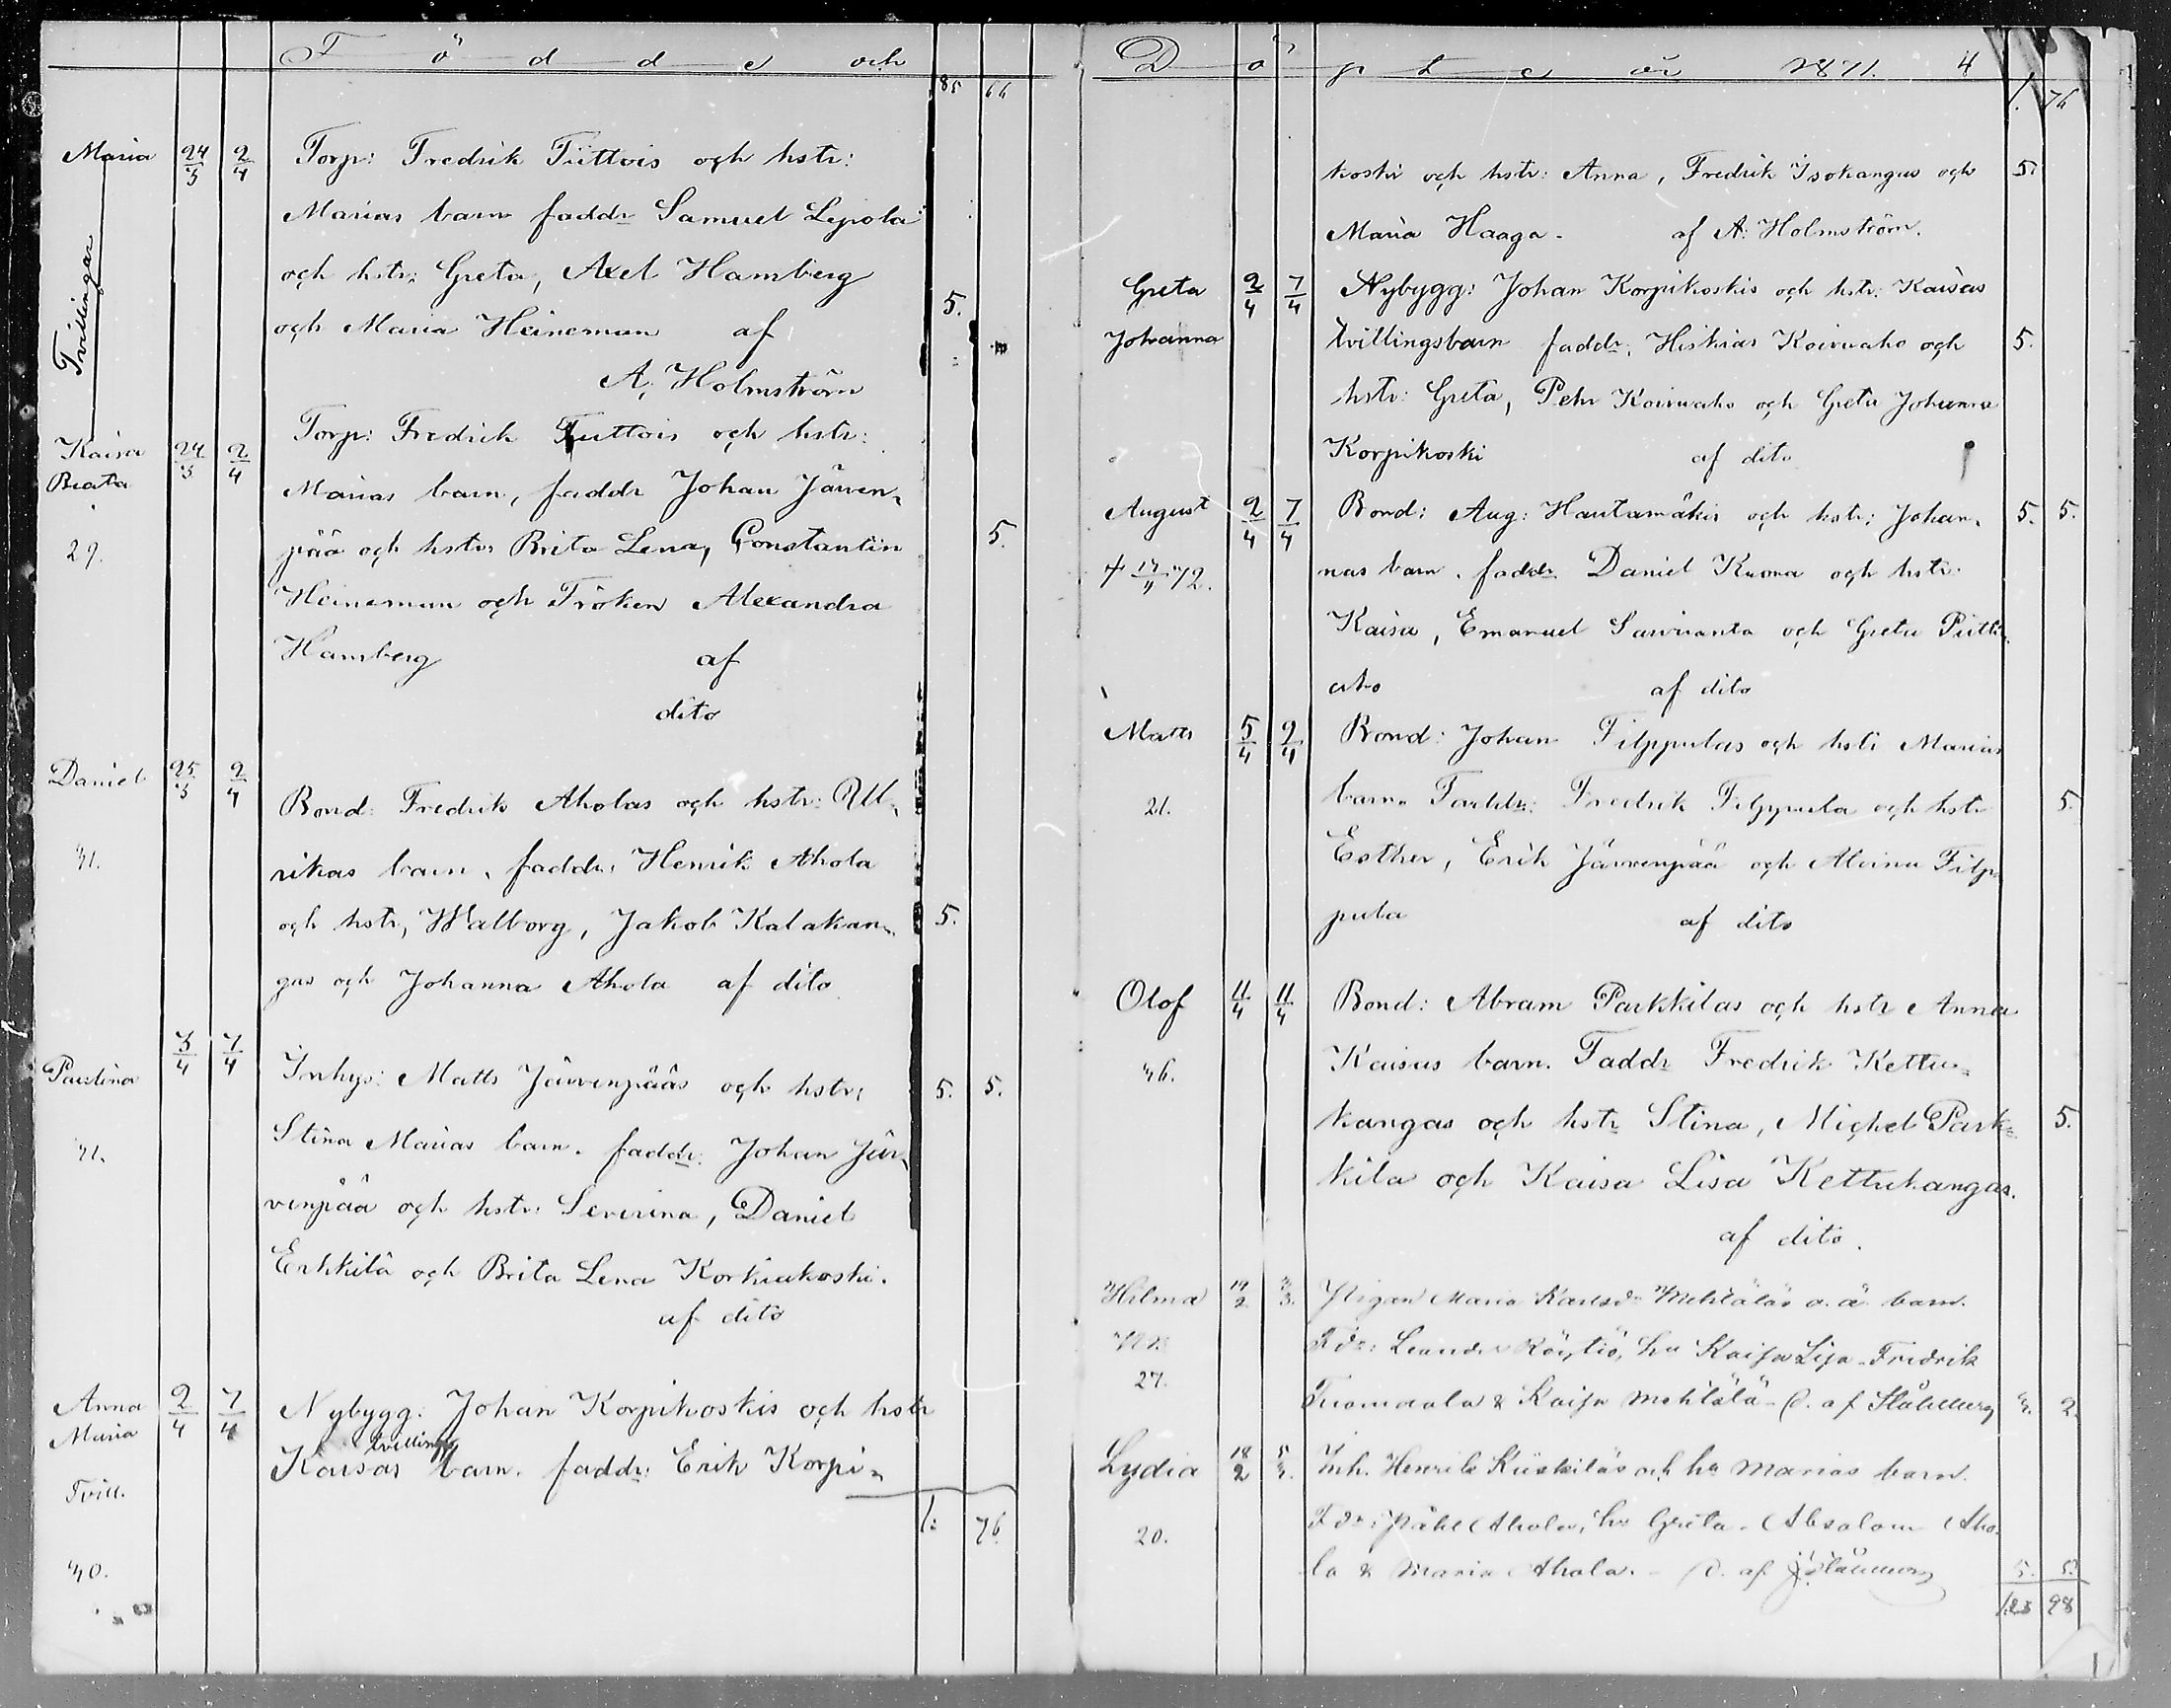 Födde och
85 66
Maria 24/3 2/4 Torp: Fredrik Tüttois och hstr:
Marias barn faddr Samuel Lepola
och hstr: Greta, Axel Hamberg
5.
och Maria Heineman af
Tvillingar
A. Holmström
Kaisa 24/3 2/4 Torp: Fredrik Tuttois och hstr:
Beata
Marias barn, faddr Johan Järven-
29. pää och hstr Brita Lena, Constantin 5.
Heineman och Fröken Alexandra
Hamberg af
dito
Daniel 25/3 2/4
Bond: Fredrik Aholas och hstr: Ul-
31. rikas barn, faddr: Henrik Ahola
och hstr, Walborg, Jakob Kalakan- 5.
gas och Johanna Ahola af dito
Paulina 3/4 7/4 Inhys: Matts Järvenpääs och hstr: 5. 5.
21. Stina Marias barn. faddr: Johan Jär-
venpää och hstr: Severina, Daniel
Erkkilä och Brita Lena Korkiakoski.
af dito
Anna 2/4 7/4 Nybygg: Johan Korpikoskis och hstr
Maria
Kaisas tvillings barn. faddr: Erik Korpi-
Tvill.
1: 76.
40.
Döpte år 1871. 4
1. 76
koski och hstr: Anna, Fredrik Isokangas och 5.
Maria Haaga. af A: Holmström.
Greta 2/4 7/4 Nybygg: Johan Korpikoskis och hstr: Kaisas
Johanna tvillingsbarn faddr: Hiskias Koivuaho och 5.
hstr: Greta, Pehr Koivuaho och Greta Johanna
Korpikoski af dito
August 2/4 7/4 Bond: Aug: Hautamäkis och hstr: Johan- 5. 5.
nas barn. faddr Daniel Kuona och hstr:
Kaisa, Emanuel Sarviranta och Greta
aho af dito
Matts 5/4 9/4 Bond: Johan Filppulas och hstr Marias
21. barn. Faddr: Fredrik Filppula och hstr 5.
Esther, Erik Järvenpää och Alvina Filp-
pula af dito
Olof 11/4 11/4 Bond: Abram Parkkilas och hstr Anna
36. Kaisas barn. Faddr Fredrik Kettu-
kangas och hstr Stina, Michel Park- 5.
kila och Kaisa Lisa Kettukangas.
af dito.
Hilma 19/2 3/3. Pigan Maria Karlsdr Mehtäläs o. ä. barn.
Fdr: Leander Röytiö, hu Kaisa Lisa. Fredrik
27.
Tuomaala & Kaisa Mehtälä. D. af Ståhlberg 3. 2.
Lydia 18/2 5/3. Inh. Henrik Kiiskiläs och hu Marias barn.
20. Fdr: Påhl Ahola, hu Greta. Absalom Aho-
la & Maria Ahola. D. af 5. 5.
1.23 98